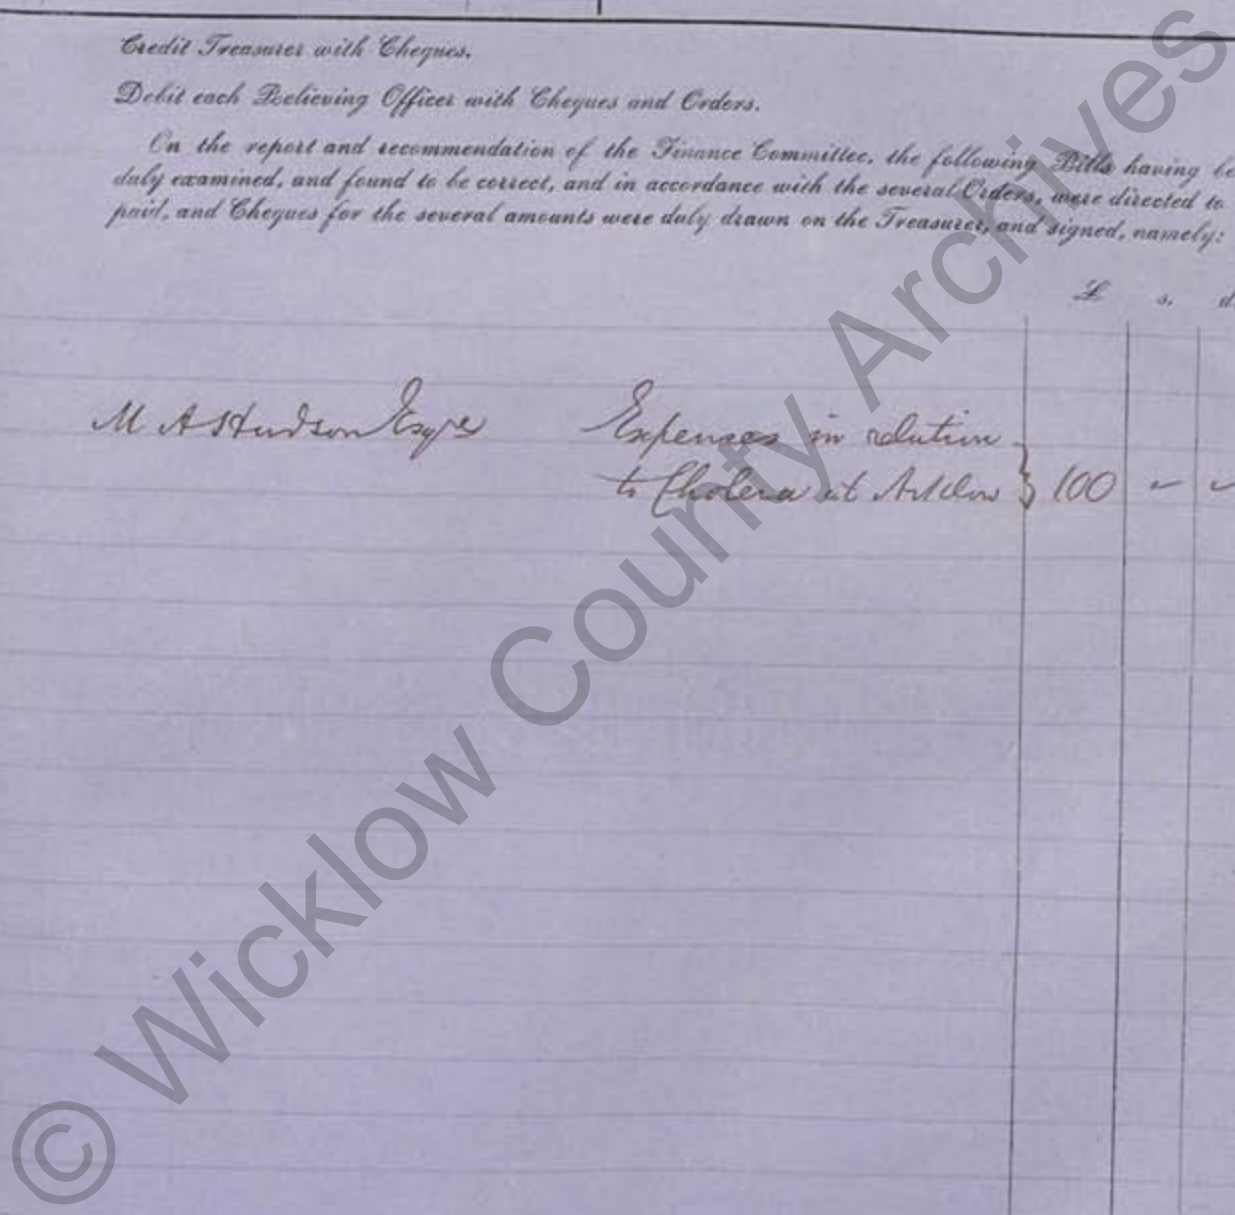 Credit Treasurer with Cheques.
Debit each Relieving Officer with Cheques and Orders.
On the report and recommendation of the Finance Committee, the following Bills having be
duly examined, and found to be correct, and in accordance with the several Orders, were directed to
paid, and Cheques for the several amounts were duly drawn on the Treasurer, and signed, namely:
£ s. d
M A Hudson Esqre Expenses in relation
to Cholera at Arklow } 100 - -
© Wicklow County Archives